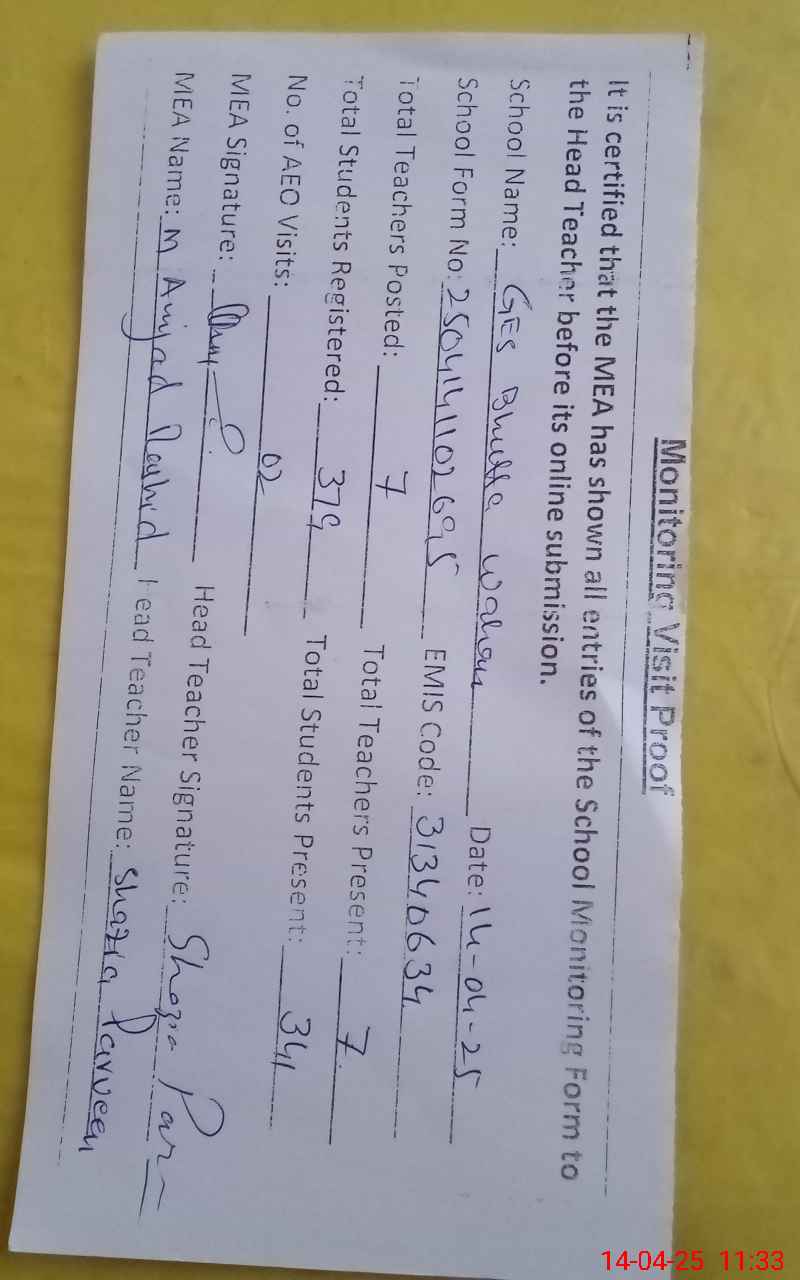 Monitoring Visit Proof
It is certified that the MEA has shown all entries of the School Monitoring Form to
the Head Teacher before its online submission.
School Name: GES Bhutta Wahan Date: 14-04-25
School Form No: 2504141102695 EMIS Code: 31340634
Total Teachers Posted: 7 Total Teachers Present: 7
Total Students Registered: 379 Total Students Present: 341
No. of AEO Visits: 02
MEA Signature: Head Teacher Signature: Shazia Par
MEA Name: M Amjad Rashid Head Teacher Name: Shazia Parveen
14-04-25 11:33